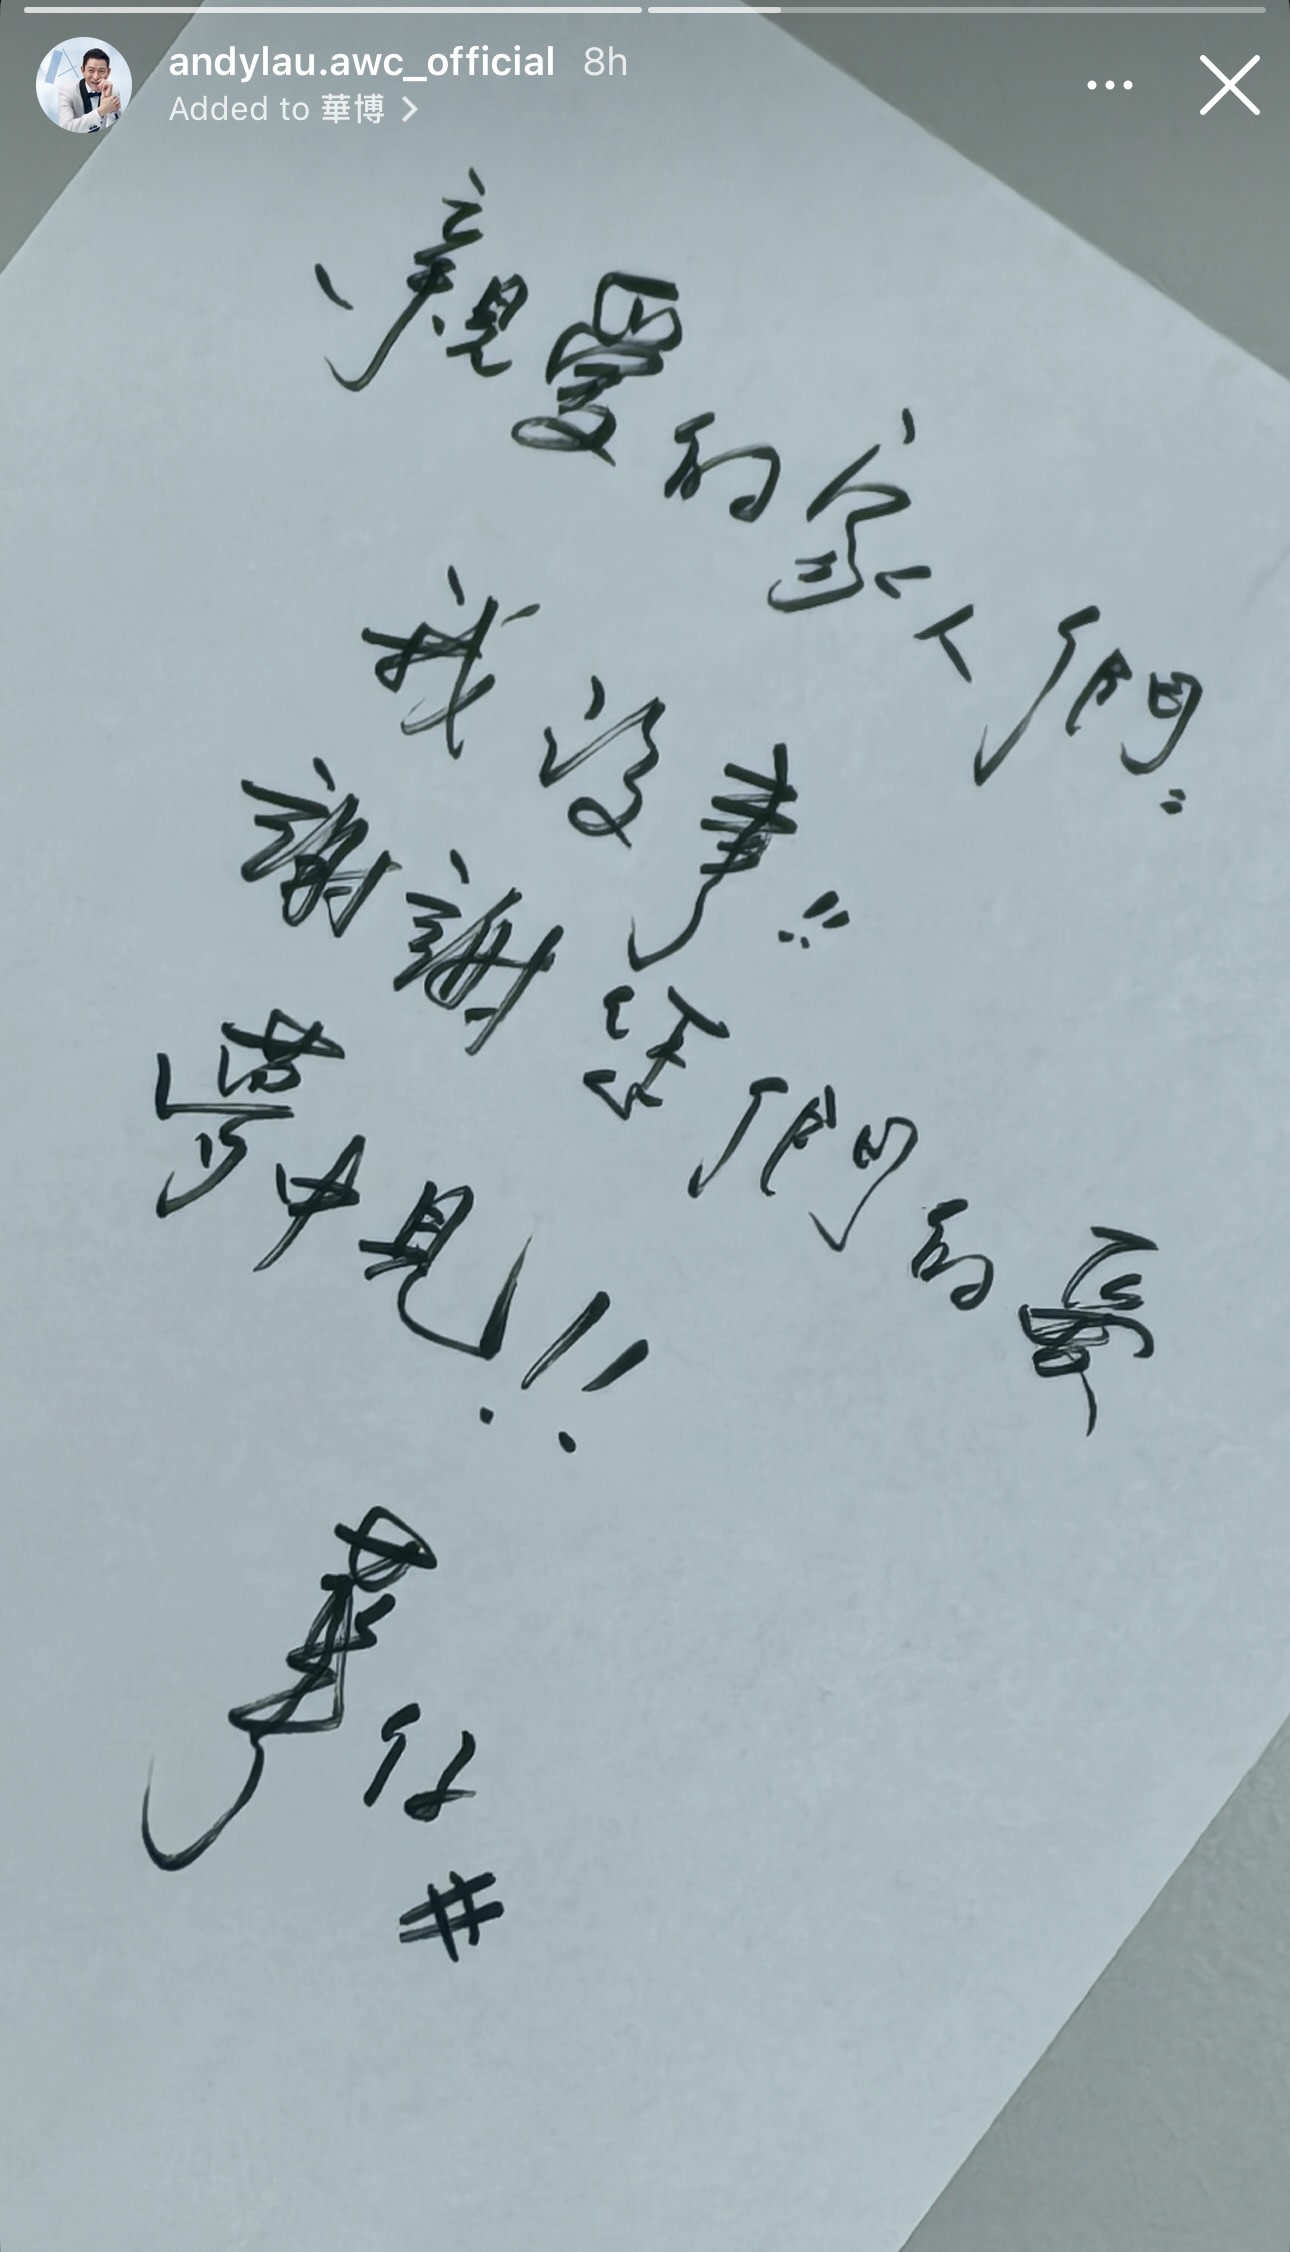 andylau.awc_official 8h
Added to 華博 >
親愛的家人們：
我沒事!!
謝謝您們的愛
夢中見!!!
華仔
#